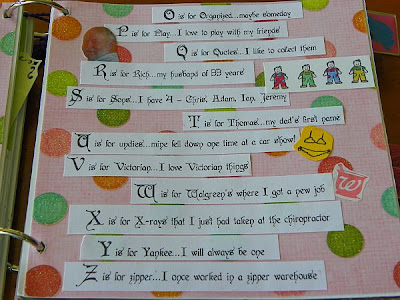 O is for Organized...maybe someday
P is for Play...I love to play with my friends
Q is for Quotes...I like to collect them
R is for Rich...my husband of 33 years
S is for Sons...I have 4 - Chris, Adam, Ian, Jeremy
T is for Thomas...my dad's first name
U is for undies...mine fell down one time at a car show!
V is for Victorian...I love Victorian things
W is for Walgreen's where I got a new job
W
X is for X-rays that I just had taken at the chiropractor
Y is for Yankee...I will always be one
Z is for zipper...I once worked in a zipper warehouse